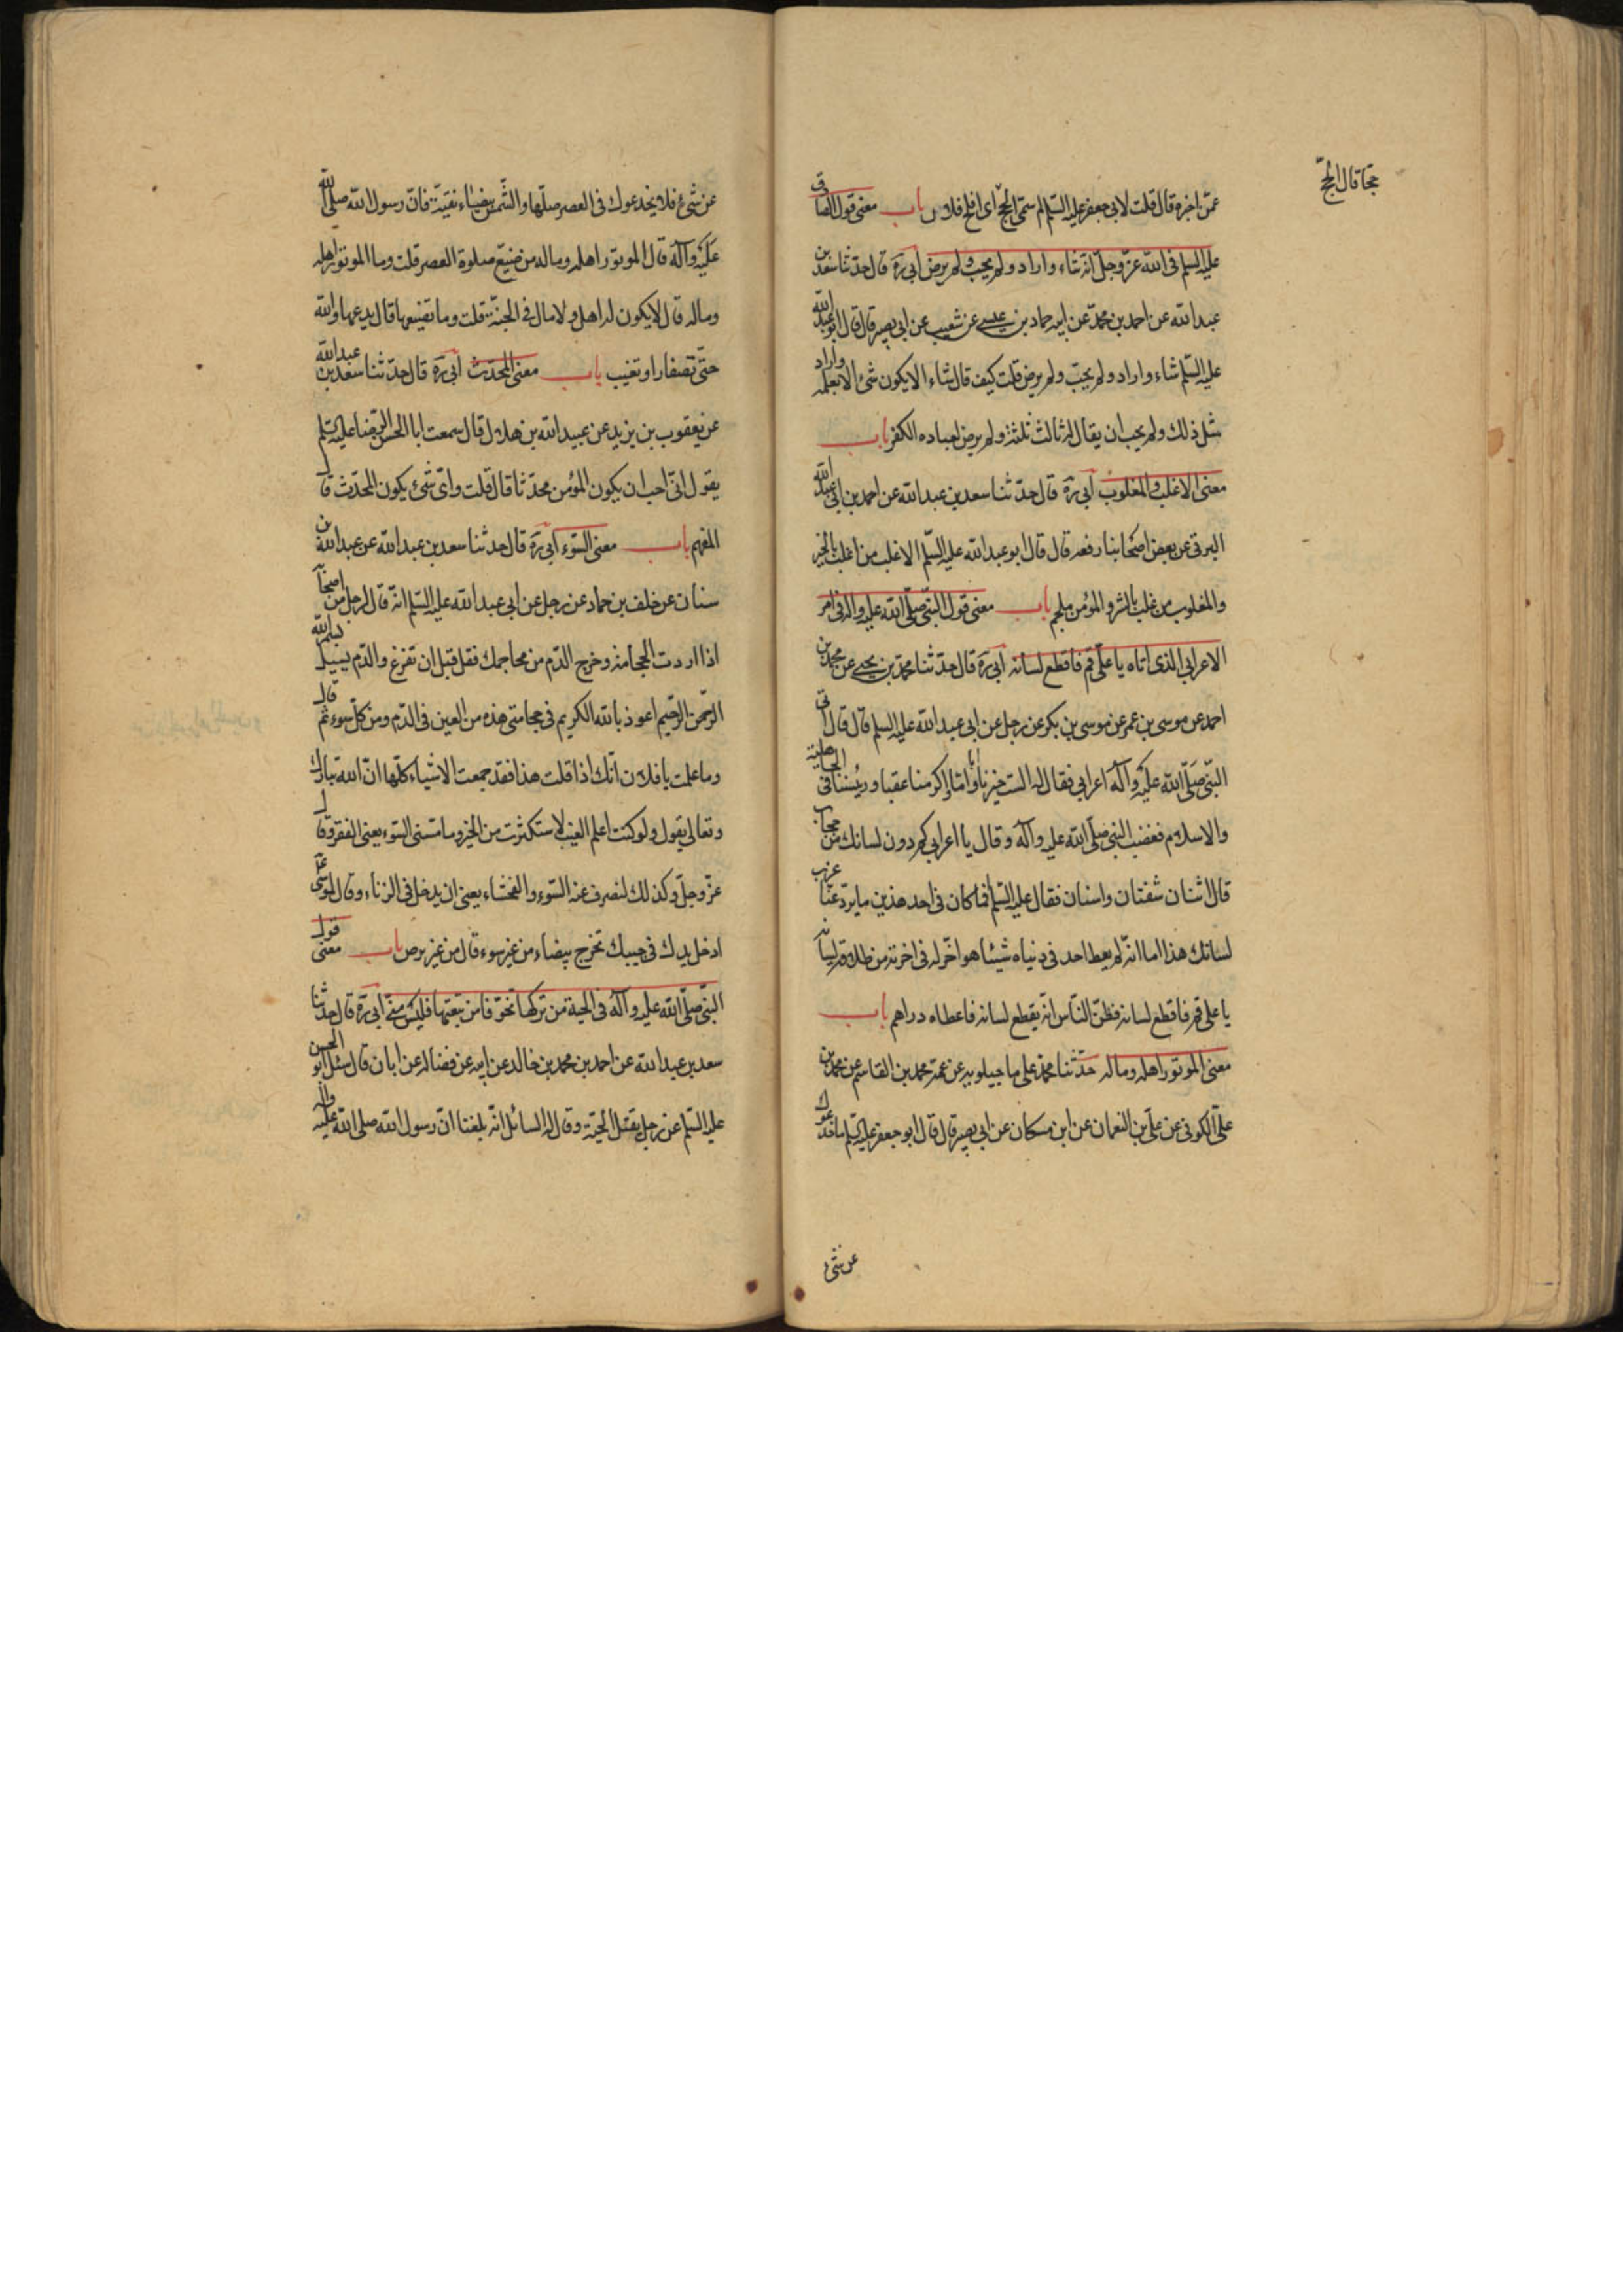 حجا قال الحج
عمن اخبره قال قلت لابي جعفر عليه السلم لم سمى الحج اى افلح فلان باب معنى قول الصادق
عليه السلم فى الله عز وجل انه شاء واراد ولم يحب ولم يرض ابى ره قال حدثنا سعد بن
عبد الله عن احمد بن محمد عن ابيه حماد بن عيسى عن شعيب عن ابى بصير قال قال ابو عبد الله
عليه السلم شاء واراد ولم يحب ولم يرض قلت كيف قال شاء الا يكون شئ الا بعلمه واراد
مثل ذلك ولم يحب ان يقال له ثالث ثلثة ولم يرض لعباده الكفر باب
معنى الاغلب والمغلوب ابى ره قال حدثنا سعد بن عبد الله عن احمد بن ابى عبد الله
البرقى عن بعض اصحابنا رفعه قال قال ابو عبد الله عليه السلم الاغلب من اغلب بالخير
والمغلوب من غلب بالشر والمؤمن ملجم باب معنى قول النبى صلى الله عليه واله فى امر
الاعرابى الذى اتاه يا على قم فاقطع لسانه ابى ره قال حدثنا محمد بن يحيى عن محمد بن
احمد عن موسى بن عمر عن موسى بن بكر عن رجل عن ابى عبد الله عليه السلم قال قال اتى
النبى صلى الله عليه وآله اعرابى فقال له الست خيرنا ابا واما واكرمنا عقبا ورئيسنا فى الجاهلية
والاسلام فغضب النبى صلى الله عليه وآله وقال يا اعرابى كم دون لسانك من حجاب
قال اثنان شفتان واسنان فقال عليه السلم فما كان فى احد هذين ما يرد عنا غرب
لسانك هذا اما انه لم يعط احد فى دنياه شيئا هو اضر له فى اخرته من طلاقة لسانه
يا على قم فاقطع لسانه فظن الناس انه يقطع لسانه فاعطاه دراهم باب
معنى الموتور اهله وماله حدثنا محمد على ماجيلويه عن عمه محمد بن القاسم عن محمد بن
على الكوفى عن على بن النعمان عن ابن مسكان عن ابى بصير قال قال ابو جعفر عليه السلم ما خدعوك
عن شئ
عن شئ فلا يخدعوك فى العصر صلها والشمس بيضاء نقية فان رسول الله صلى الله
عليه وآله قال الموتور اهله وماله من ضيع صلوة العصر قلت وما الموتور اهله
وماله قال لا يكون له اهل ولا مال فى الجنة قلت وما تضيعها قال يدعها والله
حتى تصفار او تغيب باب معنى المحدث ابى ره قال حدثنا سعد بن عبد الله
عن يعقوب بن يزيد عن عبيد الله بن هلال قال سمعت ابا الحسن الرضا عليه السلم
يقول انى احب ان يكون المؤمن محدثا قال قلت واى شئ يكون المحدث قال
المفهم باب معنى السوء ابى ره قال حدثنا سعد بن عبد الله عن عبد الله بن
سنان عن خلف بن حماد عن رجل عن ابى عبد الله عليه السلم انه قال لرجل من اصحابه
اذا اردت الحجامة وخرج الدم من محاجمك فقل قبل ان تفرغ والدم يسيل بسم الله
الرحمن الرحيم اعوذ بالله الكريم فى حجامتى هذه من العين فى الدم ومن كل سوء ثم قال
وما علمت يا فلان انك اذا قلت هذا فقد جمعت الاشياء كلها ان الله تبارك
وتعالى يقول ولو كنت اعلم الغيب لاستكثرت من الخير وما مسنى السوء يعنى الفقر وقال
عز وجل وكذلك لنصرف عنه السوء والفحشاء يعنى ان يدخل فى الزناء وقال لموسى
ادخل يدك فى جيبك تخرج بيضاء من غير سوء قال من غير برص باب معنى قول
النبى صلى الله عليه وآله فى الحية من تركها تخوفا من تبعتها فليس منى ابى ره قال حدثنا
سعد بن عبد الله عن احمد بن محمد بن خالد عن ابيه عن فضاله عن ابان قال سئل ابو الحسن
عليه السلم عن رجل يقتل الحية وقال له السائل انه بلغنا ان رسول الله صلى الله عليه واله